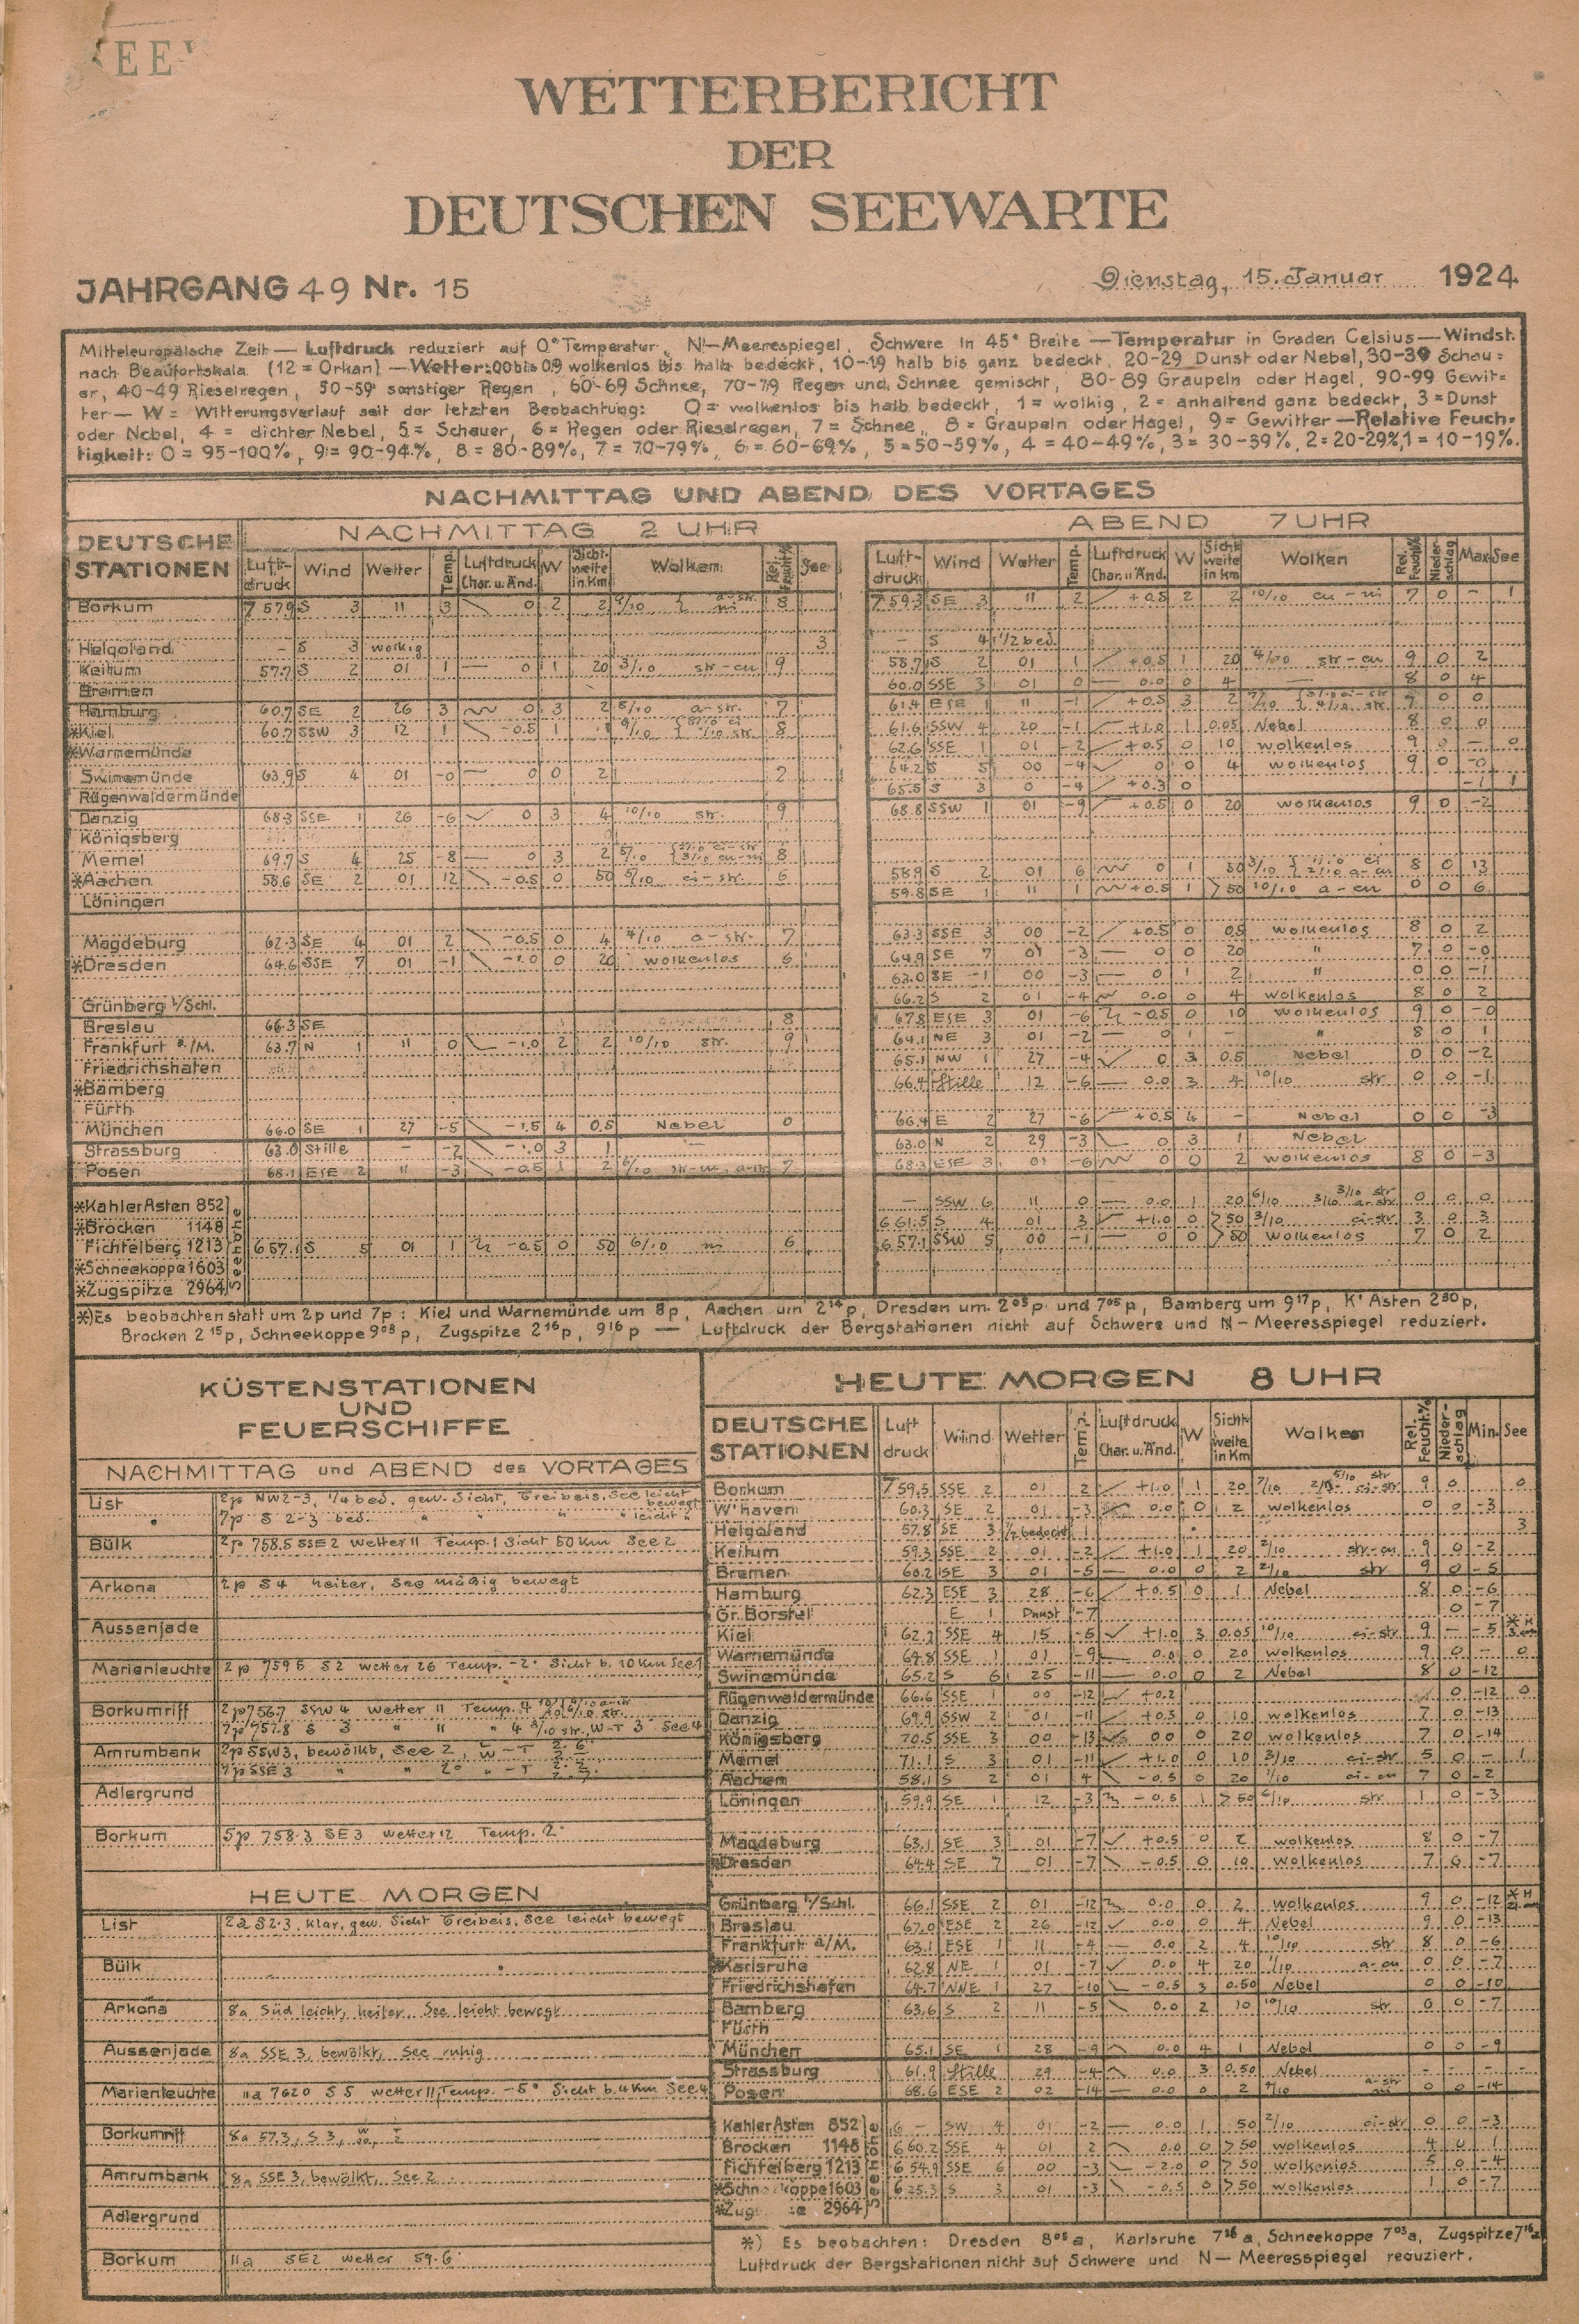 WETTERBERICHT
DER
DEUTSCHEN SEEWARTE
JAHRGANG 49 Nr. 15 Dienstag, 15. Januar 1924
Mitteleuropäische Zeit — Luftdruck reduziert auf 0° Temperatur, N!—Meerespiegel, Schwere in 45° Breite — Temperatur in Graden Celsius — Windst.
nach Beaufortskala (12 = Orkan) — Wetter: 00 bis 09 wolkenlos bis halb bedeckt, 10-19 halb bis ganz bedeckt, 20-29 Dunst oder Nebel, 30-39 Schau=
er, 40-49 Rieselregen, 50-59 sonstiger Regen, 60-69 Schnee, 70-79 Regen und Schnee gemischt, 80-89 Graupeln oder Hagel, 90-99 Gewit=
ter — W = Witterungsverlauf seit der letzten Beobachtung: 0 = wolkenlos bis halb bedeckt, 1 = wolkig, 2 = anhaltend ganz bedeckt, 3 = Dunst
oder Nebel, 4 = dichter Nebel, 5 = Schauer, 6 = Regen oder Rieselregen, 7 = Schnee, 8 = Graupeln oder Hagel, 9 = Gewitter — Relative Feuch-
tigkeit: 0 = 95-100%, 9 = 90-94%, 8 = 80-89%, 7 = 70-79%, 6 = 60-69%, 5 = 50-59%, 4 = 40-49%, 3 = 30-39%, 2 = 20-29%, 1 = 10-19%.
NACHMITTAG UND ABEND DES VORTAGES
DEUTSCHE STATIONEN
NACHMITTAG 2 UHR
Luft-druck Wind Wetter Temp. Luftdruck Char. u. Änd. W Sicht-weite in Km Wolken Rel. Feucht.% See
Borkum 757.9 S 3 11 3 0 2 2 9/10 a-str. ni 8
Helgoland — S 3 wolkig 3
Keitum 57.7 S 2 01 1 — 0 1 20 3/10 str-cu 9
Bremen
Hamburg 60.7 SE 2 26 3 0 3 2 8/10 a-str. 7
*Kiel 60.7 SSW 3 12 1 -0.5 1 9/10 8
*Warnemünde
Swinemünde 63.9 S 4 01 -0 — 0 0 2 2
Rügenwaldermünde
Danzig 68.3 SSE 1 26 -6 0 3 4 10/10 str. 9
Königsberg
Memel 69.7 S 4 25 -8 — 0 3 2 5/10 8
*Aachen 58.6 SE 2 01 12 -0.5 0 50 5/10 ci-str. 6
Löningen
Magdeburg 62.3 SE 4 01 2 -0.5 0 4 4/10 a-str. 7
*Dresden 64.6 SSE 7 01 -1 -1.0 0 20 wolkenlos 6
Grünberg i/Schl.
Breslau 66.3 SE 8
Frankfurt a./M. 63.7 N 1 11 0 -1.0 2 2 10/10 str. 9
Friedrichshafen
*Bamberg
Fürth
München 66.0 SE 1 27 -5 -1.5 4 0.5 Nebel 0
Strassburg 63.0 Stille — -2 3 1 —
Posen 68.1 ESE 2 11 -3 -0.5 1 2 6/10 7
*Kahler Asten 852
*Brocken 1148
Fichtelberg 1213 657.1 S 5 01 1 -0.5 0 50 6/10 ni 6
*Schneekoppe 1603
*Zugspitze 2964
Seehöhe
ABEND 7 UHR
Luft-druck Wind Wetter Temp. Luftdruck Char. u. Änd. W Sicht-weite in Km Wolken Rel. Feucht.% Nieder-schlag Max. See
759.3 SE 3 11 2 +0.5 2 2 10/10 cu-ni 7 0 — 1
— S 4 1/2 bed.
58.7 S 2 01 1 +0.5 1 20 4/10 str-cu 9 0 2
60.0 SSE 3 01 0 — 0.0 0 4 — 8 0 4
61.4 ESE 1 11 -1 +0.5 3 2 0 0
61.6 SSW 4 20 -1 +1.0 1 0.05 Nebel 8 0 0
62.6 SSE 1 01 -2 +0.5 0 10 wolkenlos 9 0 — 0
64.2 S 5 00 -4 0 0 4 wolkenlos 9 0 -0
65.5 S 3 0 -4 +0.3 0 -1 1
68.8 SSW 1 01 -9 +0.5 0 20 wolkenlos 9 0 -2
58.9 S 2 01 6 0 1 50 3/10 8 0 13
59.8 SE 1 11 1 +0.5 1 >50 10/10 a-cu 0 0 6
63.3 SSE 3 00 -2 +0.5 0 0.5 wolkenlos 8 0 2
64.9 SE 7 01 -3 — 0 0 20 " 7 0 -0
63.0 SE 1 00 -3 — 0 1 2 " 0 0 -1
66.2 S 2 01 -4 0.0 0 4 wolkenlos 8 0 2
67.8 ESE 3 01 -6 -0.5 0 10 wolkenlos 9 0 -0
64.1 NE 3 01 -2 — 0 1 — " 8 0 1
65.1 NW 1 27 -4 0 3 0.5 Nebel 0 0 -2
66.4 Stille 12 -6 — 0.0 3 4 10/10 str 0 0 -1
66.4 E 2 27 -6 +0.5 4 — Nebel 0 0 -3
63.0 N 2 29 -3 0 3 1 Nebel
68.3 ESE 3 01 -6 0 0 2 wolkenlos 8 0 -3
— SSW 6 11 0 — 0.0 1 20 6/10 3/10 str 3/10 a-str 0 0 0
661.5 S 4 01 3 +1.0 0 >50 3/10 ci-str 3 0 3
657.1 SSW 5 00 -1 — 0 0 >50 wolkenlos 7 0 2
*) Es beobachten statt um 2p und 7p: Kiel und Warnemünde um 8p, Aachen um 2 14 p, Dresden um 2 05 p und 7 05 p, Bamberg um 9 17 p, K' Asten 2 30 p,
Brocken 2 15 p, Schneekoppe 9 03 p, Zugspitze 2 16 p, 9 16 p — Luftdruck der Bergstationen nicht auf Schwere und N—Meeresspiegel reduziert.
KÜSTENSTATIONEN
UND
FEUERSCHIFFE
NACHMITTAG und ABEND des VORTAGES
List 2p NW 2-3, 1/4 bed. gew. Sicht, Treibeis, See leicht bewegt
7p S 2-3 bed. " " " " leicht "
Bülk 2p 758.5 SSE 2 Wetter 11 Temp. 1 Sicht 50 Km See 2
Arkona 2p S 4 heiter, See mäßig bewegt
Aussenjade
Marienleuchte 2p 759.6 S 2 Wetter 26 Temp. -2° Sicht b. 10 Km See 1
Borkumriff 2p 756.7 SSW 4 Wetter 11 Temp. 4
7p 757.8 S 3 " 11 " 4 3/10 str. W-T 3 See 4
Amrumbank 2p SSW 3, bewölkt, See 2, W-T
7p SSE 3 " " 2 " -T
Adlergrund
Borkum 5p 758.3 SE 3 Wetter 12 Temp. 2°
HEUTE MORGEN
List 2a S 2-3, klar, gew. Sicht Treibeis, See leicht bewegt
Bülk
Arkona 8a Süd leicht, heiter, See leicht bewegt
Aussenjade 8a SSE 3, bewölkt, See ruhig
Marienleuchte 11a 7620 S 5 Wetter 11, Temp. -5° Sicht b. 4 Km See 4
Borkumriff 8a 57.3, S 3,
Amrumbank 8a SSE 3, bewölkt, See 2
Adlergrund
Borkum 11a SE 2 Wetter 59.6
HEUTE MORGEN 8 UHR
DEUTSCHE STATIONEN Luft druck Wind Wetter Temp. Luftdruck Char. u. Änd. W Sicht-weite in Km Wolken Rel. Feucht.% Nieder-schlag Min. See
Borkum 759.5 SSE 2 01 2 +1.0 1 20 7/10 9 0 0
W'haven 60.3 SE 2 01 -3 0.0 0 2 wolkenlos 0 0 -3
Helgoland 57.8 SE 3 1/2 bedeckt 1 3
Keitum 59.3 SSE 2 01 -2 +1.0 1 20 2/10 str-cu 9 0 -2
Bremen 60.2 SE 3 01 -5 — 0.0 0 2 2/10 str 9 0 -5
Hamburg 62.3 ESE 3 28 -6 +0.5 0 1 Nebel 8 0 -6
Gr. Borstel E 1 Dunst -7 0 -7
Kiel 62.2 SSE 4 15 -5 +1.0 3 0.05 10/10 ci-str 9 — -5
Warnemünde 64.8 SSE 1 01 -9 0.0 0 20 wolkenlos 9 0 — 0
Swinemünde 65.2 S 6 25 -11 — 0.0 0 2 Nebel 8 0 -12
Rügenwaldermünde 66.6 SSE 1 00 -12 +0.2 0 -12 0
Danzig 69.9 SSW 2 01 -11 +0.5 0 10 wolkenlos 7 0 -13
Königsberg 70.5 SSE 3 00 -13 0.0 0 20 wolkenlos 7 0 -14
Memel 71.1 S 3 01 -11 +1.0 0 10 3/10 ci-str 5 0 — 1
Aachen 58.1 S 2 01 4 -0.5 0 20 1/10 ci-cu 7 0 -2
Löningen 59.9 SE 1 12 -3 -0.5 1 >50 6/10 str 1 0 -3
Magdeburg 63.1 SE 3 01 -7 +0.5 0 2 wolkenlos 8 0 -7
*Dresden 64.4 SE 7 01 -7 -0.5 0 10 wolkenlos 7 0 -7
Grünberg i/Schl. 66.1 SSE 2 01 -12 0.0 0 2 wolkenlos 9 0 -12
Breslau 67.0 ESE 2 26 -12 0.0 0 4 Nebel 9 0 -13
Frankfurt a/M. 63.1 ESE 1 11 -4 — 0.0 2 4 10/10 str 8 0 -6
*Karlsruhe 62.8 NE 1 01 -7 0.0 4 20 1/10 a-cu 0 0 -7
Friedrichshafen 64.7 NNE 1 27 -10 -0.5 3 0.50 Nebel 0 0 -10
Bamberg 63.6 S 2 11 -5 0.0 2 10 10/10 str 0 0 -7
Fürth
München 65.1 SE 1 28 -9 0.0 4 1 Nebel 0 0 -9
Strassburg 61.9 Stille 29 -4 0.0 3 0.50 Nebel - - - -
Posen 68.6 ESE 2 02 -14 — 0.0 0 2 0 0 -14
Kahler Asten 852 6 — SW 4 01 -2 — 0.0 1 50 2/10 ci-str 0 0 -3
Brocken 1148 660.2 SSE 4 01 2 0.0 0 >50 wolkenlos 4 0 1
Fichtelberg 1213 654.9 SSE 6 00 -3 -2.0 0 >50 wolkenlos 5 0 -4
*Schn koppe 1603 625.3 S 3 01 -3 -0.5 0 >50 wolkenlos 1 0 -7
*Zug ze 2964
Seehöhe
*) Es beobachten: Dresden 8 05 a, Karlsruhe 7 26 a, Schneekoppe 7 03 a, Zugspitze 7 16 a
Luftdruck der Bergstationen nicht auf Schwere und N—Meeresspiegel reduziert.